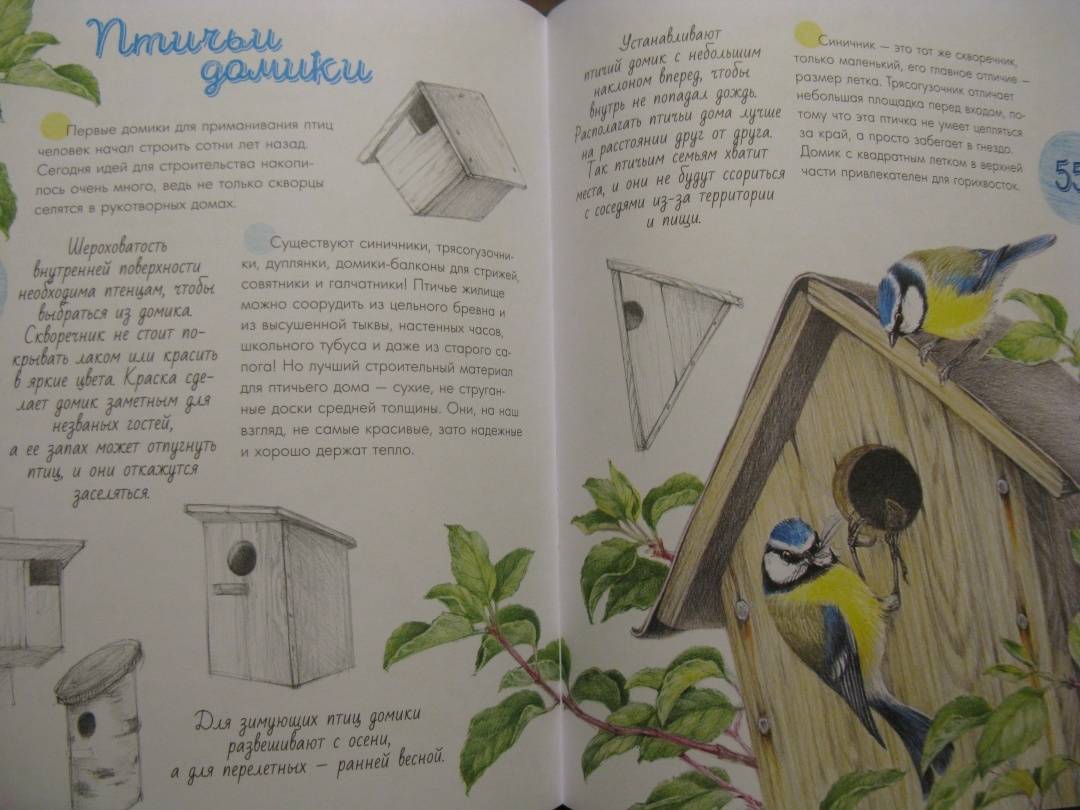 Птичьи
домики
Первые домики для приманивания птиц
человек начал строить сотни лет назад.
Сегодня идей для строительства накопи-
лось очень много, ведь не только скворцы
селятся в рукотворных домах.
Шероховатость
внутренней поверхности
необходима птенцам, чтобы
выбраться из домика.
Скворечник не стоит по-
крывать лаком или красить
в яркие цвета. Краска сде-
лает домик заметным для
незваных гостей,
а ее запах может отпугнуть
птиц, и они откажутся
заселяться.
Существуют синичники, трясогузочни-
ки, дуплянки, домики-балконы для стрижей,
совятники и галчатники! Птичье жилище
можно соорудить из цельного бревна и
из высушенной тыквы, настенных часов,
школьного тубуса и даже из старого са-
пога! Но лучший строительный материал
для птичьего дома — сухие, не струган-
ные доски средней толщины. Они, на наш
взгляд, не самые красивые, зато надежные
и хорошо держат тепло.
Для зимующих птиц домики
развешивают с осени,
а для перелетных — ранней весной.
Устанавливают
птичий домик с небольшим
наклоном вперед, чтобы
внутрь не попадал дождь.
Располагать птичьи дома лучше
на расстоянии друг от друга.
Так птичьим семьям хватит
места, и они не будут ссориться
с соседями из-за территории
и пищи.
Синичник — это тот же скворечник,
только маленький, его главное отличие –
размер летка. Трясогузочник отличает
небольшая площадка перед входом, по-
тому что эта птичка не умеет цепляться
за край, а просто забегает в гнездо.
Домик с квадратным летком в верхней
части привлекателен для горихвосток.
55